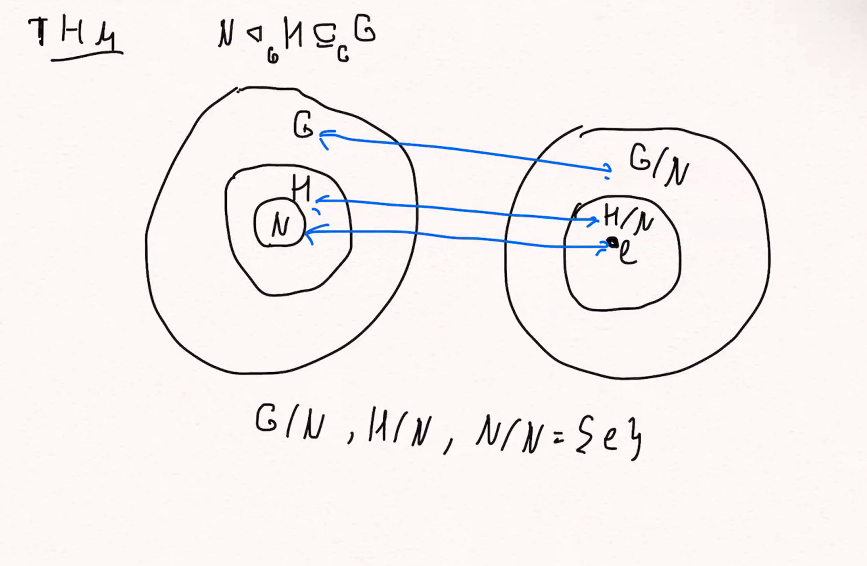 THM N ◁_G H ⊆_G G
G
G/N
H
H/N
N
e
G/N , H/N , N/N = {e}